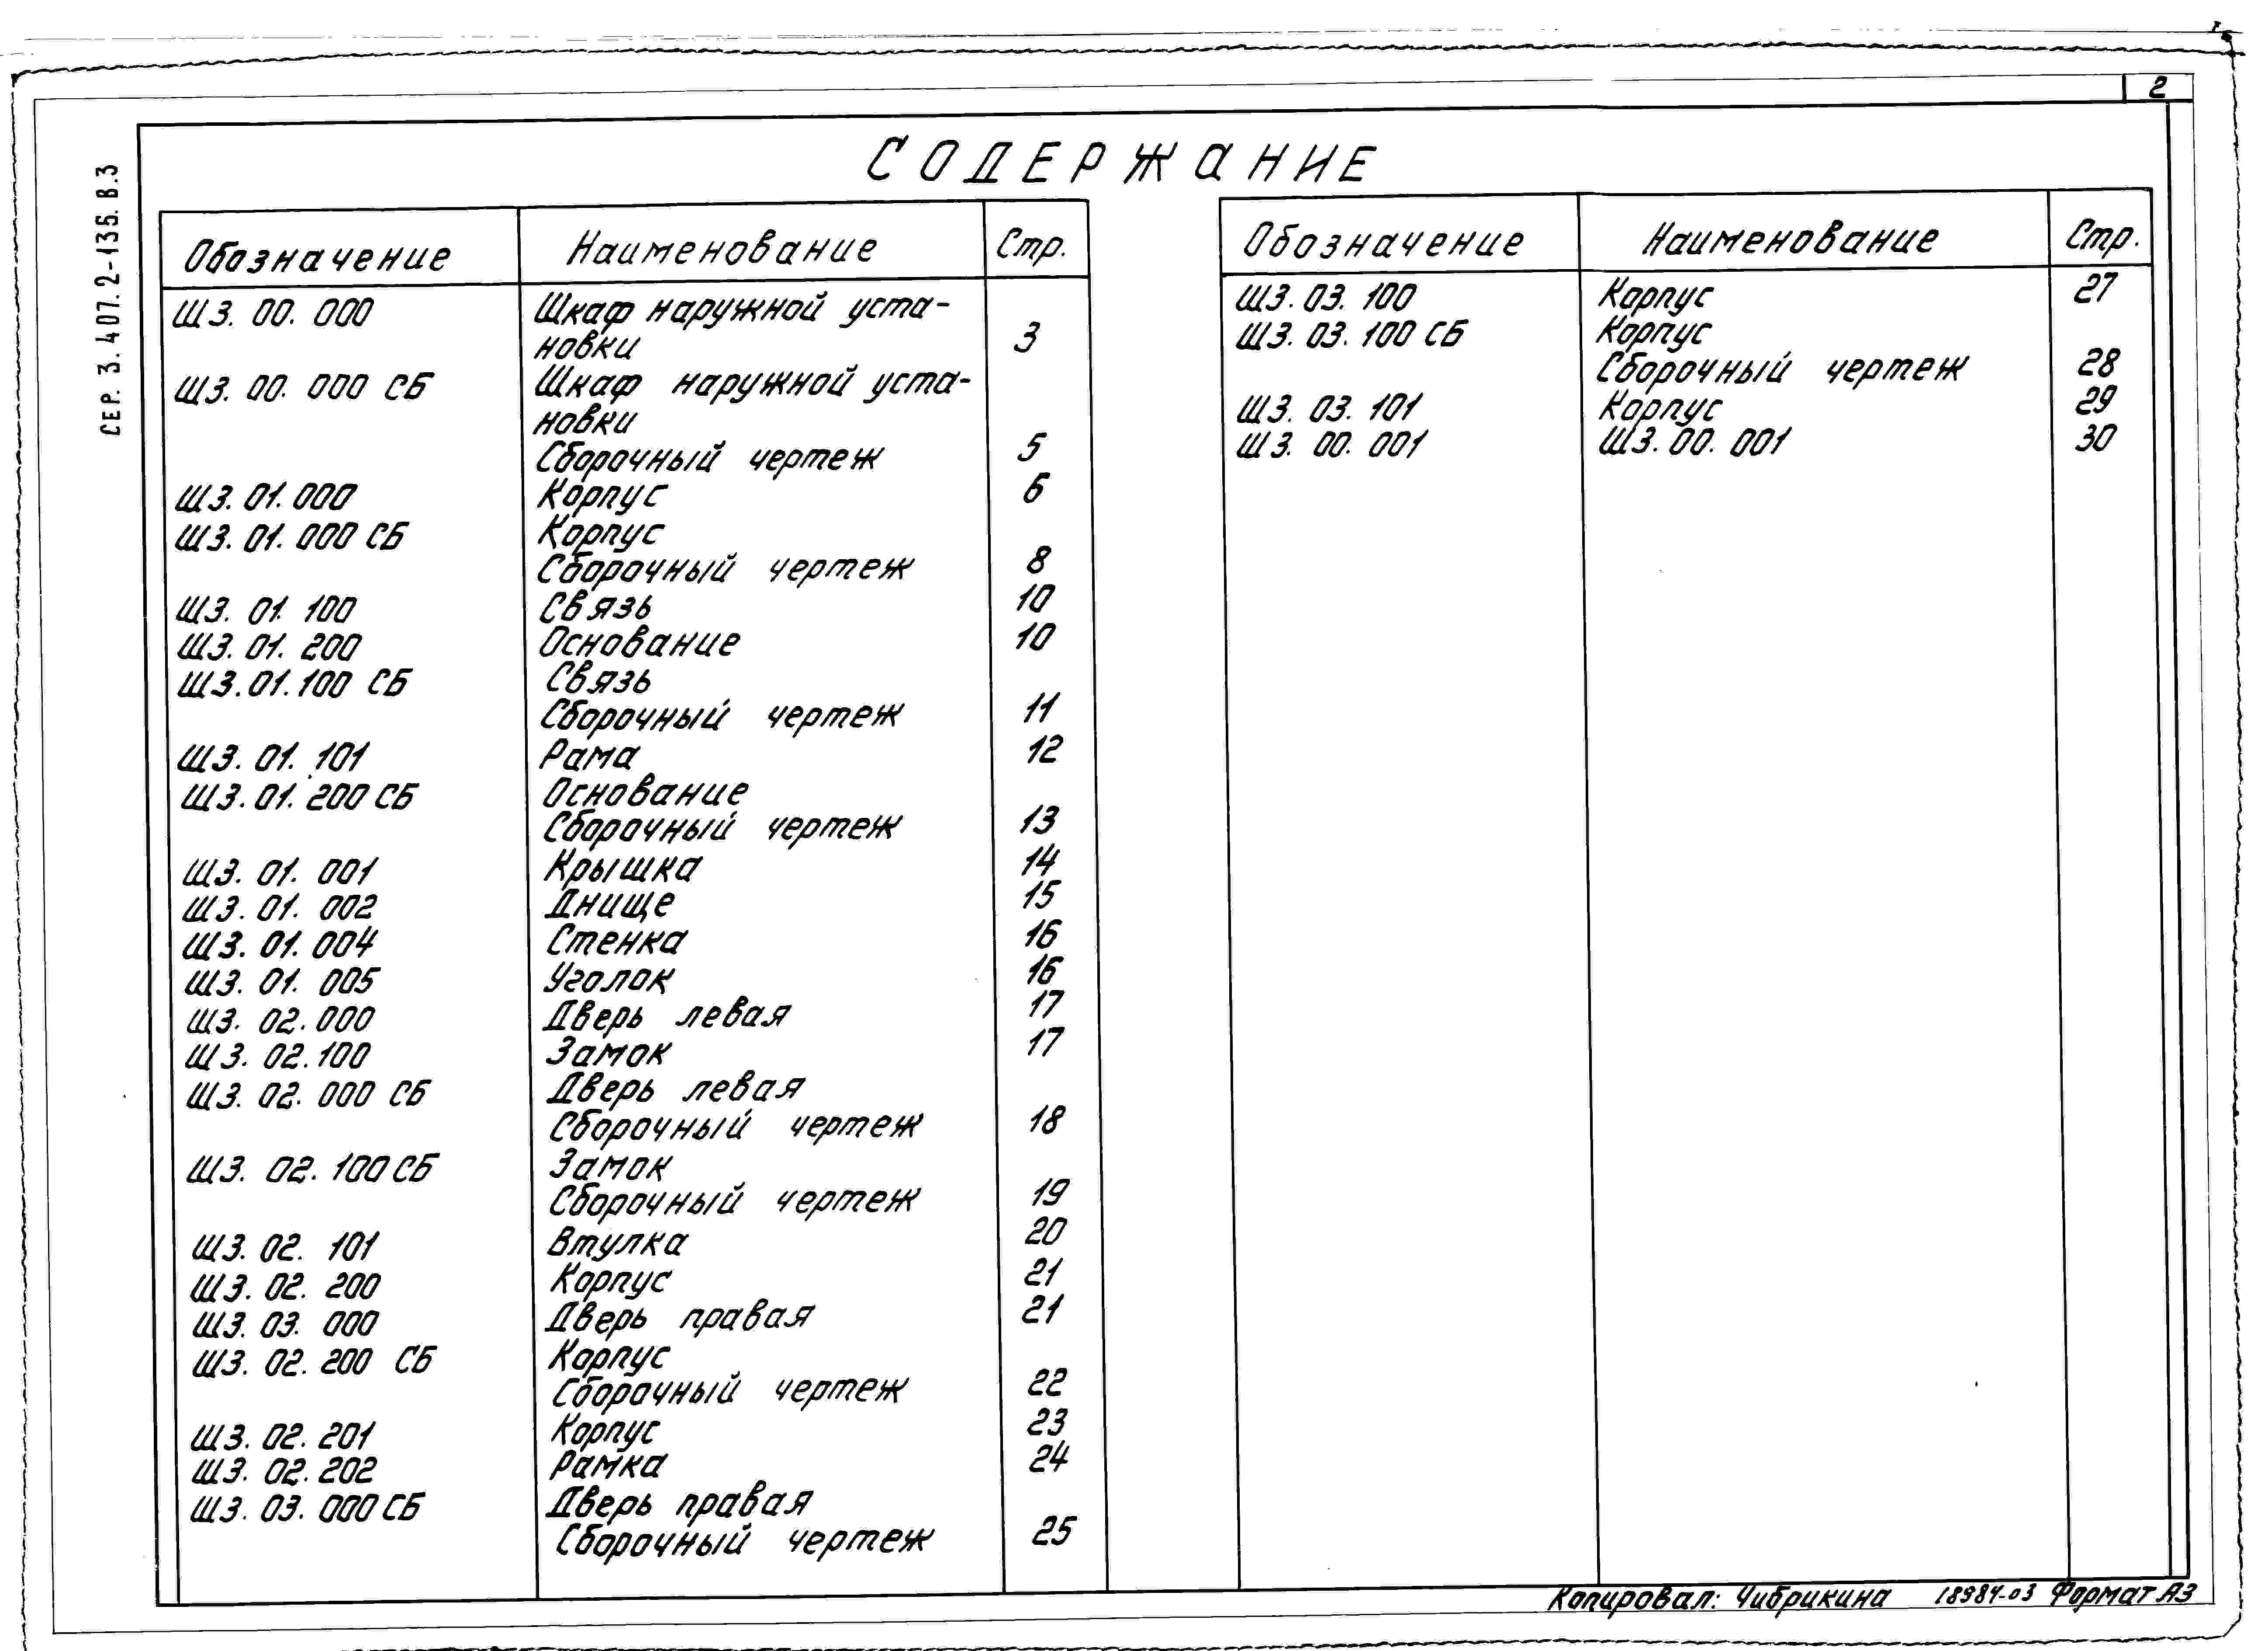 2
СОДЕРЖАНИЕ
СЕР. 3.407.2-136. В.3
Обозначение Наименование Стр.
ШЗ. 00. 000 Шкаф наружной уста-
новки 3
ШЗ. 00. 000 СБ Шкаф наружной уста-
новки
Сборочный чертеж 5
ШЗ. 01. 000 Корпус 6
ШЗ. 01. 000 СБ Корпус
Сборочный чертеж 8
ШЗ. 01. 100 Связь 10
ШЗ. 01. 200 Основание 10
ШЗ. 01. 100 СБ Связь
Сборочный чертеж 11
ШЗ. 01. 101 Рама 12
ШЗ. 01. 200 СБ Основание
Сборочный чертеж 13
ШЗ. 01. 001 Крышка 14
ШЗ. 01. 002 Днище 15
ШЗ. 01. 004 Стенка 16
ШЗ. 01. 005 Уголок 16
ШЗ. 02. 000 Дверь левая 17
ШЗ. 02. 100 Замок 17
ШЗ. 02. 000 СБ Дверь левая
Сборочный чертеж 18
ШЗ. 02. 100 СБ Замок
Сборочный чертеж 19
ШЗ. 02. 101 Втулка 20
ШЗ. 02. 200 Корпус 21
ШЗ. 03. 000 Дверь правая 21
ШЗ. 02. 200 СБ Корпус
Сборочный чертеж 22
ШЗ. 02. 201 Корпус 23
ШЗ. 02. 202 Рамка 24
ШЗ. 03. 000 СБ Дверь правая
Сборочный чертеж 25
Обозначение Наименование Стр.
ШЗ. 03. 100 Корпус 27
ШЗ. 03. 100 СБ Корпус
Сборочный чертеж 28
ШЗ. 03. 101 Корпус 29
ШЗ. 00. 001 ШЗ. 00. 001 30
Копировал: Чибрикина 18984-03 Формат А3